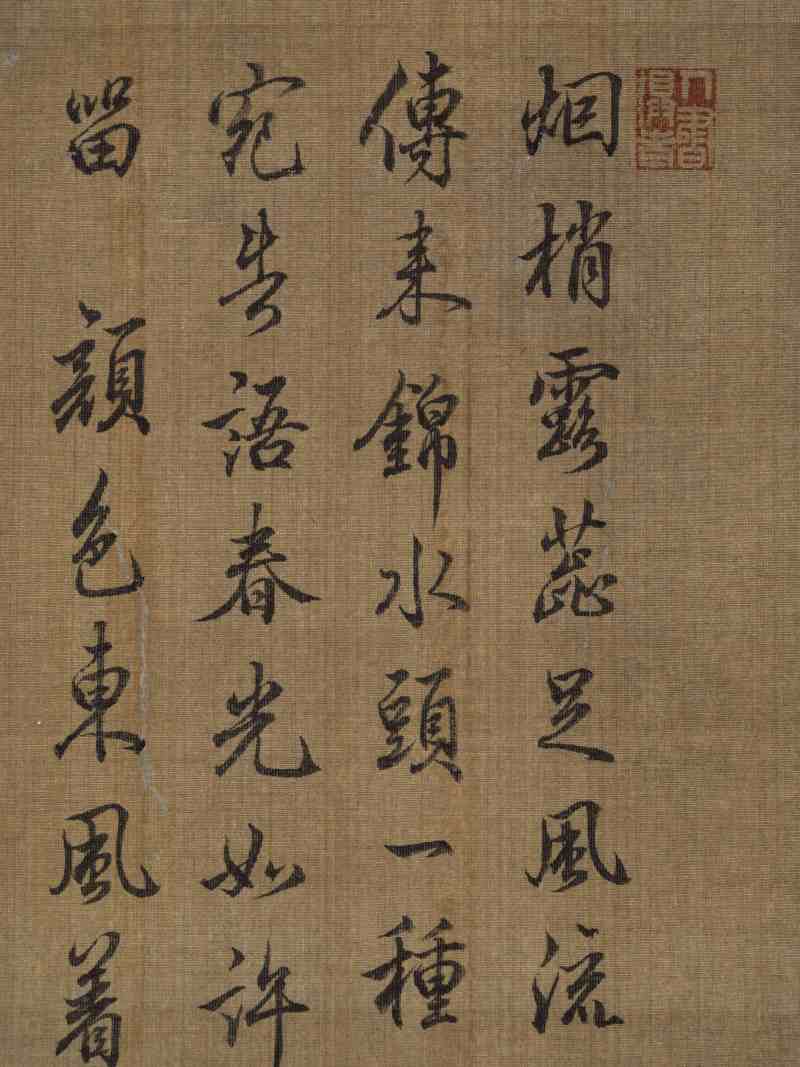 烟梢露蕊足風流
傳来錦水頭一種
宛告語春光如許
留顔色東風着